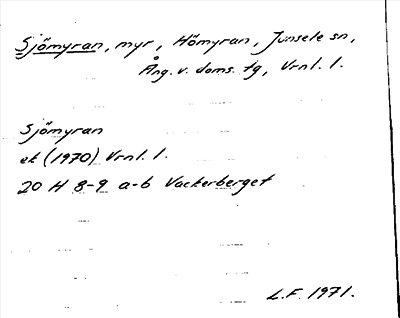 Sjömyran, myr, Hömyran, Junsele sn,
Ång. v. doms. tg, Vrnl. l.
Sjömyran
ek (1970) Vrnl. l.
20 H 8-9 a-b Vackerberget
L.F. 1971.